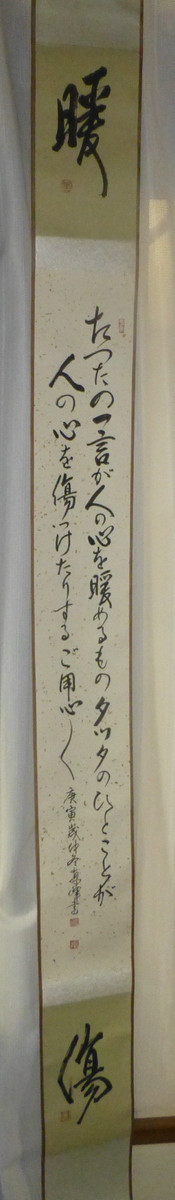 暖
たつたの一言が人の心を暖めるもの タッタのひとことが
人の心を傷つけたりする ご用心〱
庚寅歳仲冬 書
傷